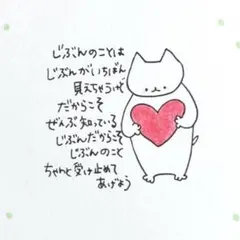 じぶんのことは
じぶんがいちばん
見えちゃうけど
だからこそ
ぜんぶ知っている
じぶんだからこそ
じぶんのこと
ちゃんと受け止めて
あげよう